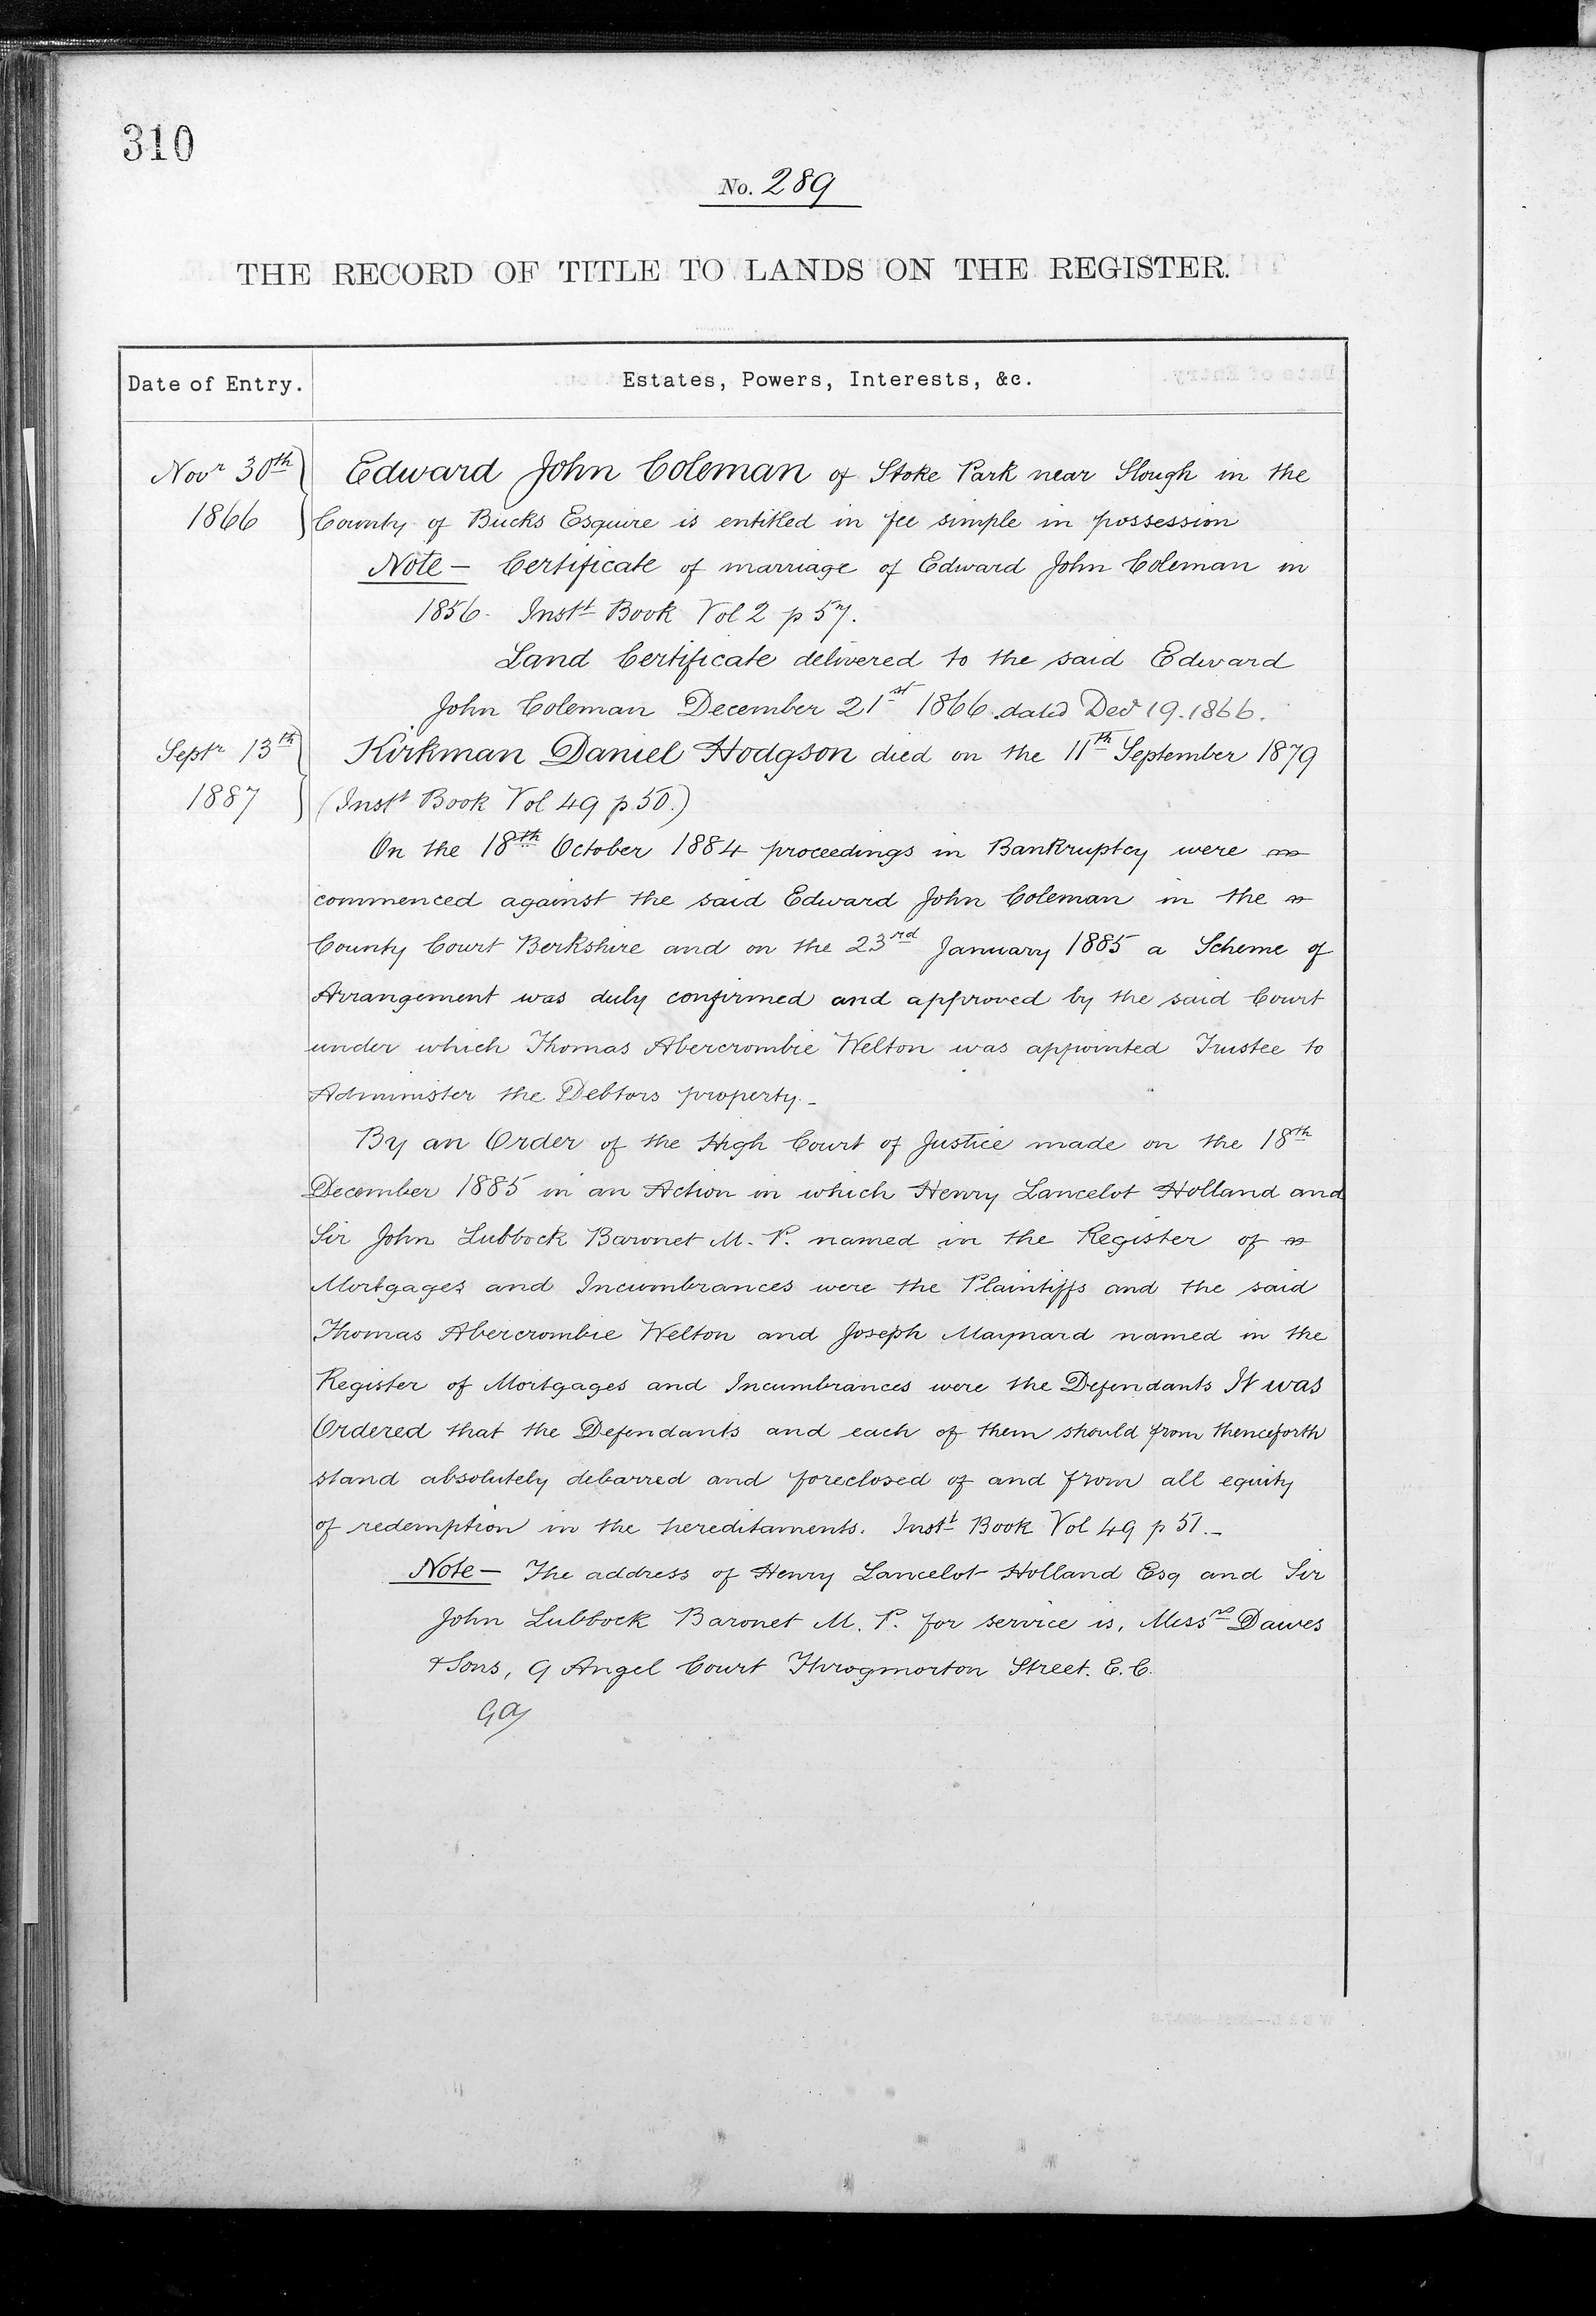 310
No. 289
THE RECORD OF TITLE TO LANDS ON THE REGISTER.
Date of Entry. Estates, Powers, Interests, &c.
Novr 30th Edward John Coleman of Stoke Park near Slough in the
1866 County of Bucks Esquire is entitled in fee simple in possession
Note - Certificate of marriage of Edward John Coleman in
1856. Instt Book Vol 2 p 57.
Land Certificate delivered to the said Edward
John Coleman December 21st 1866. dated Decr 19. 1866.
Septr 13th Kirkman Daniel Hodgson died on the 11th September 1879
1887 (Instt Book Vol 49 p 50.)
On the 18th October 1884 proceedings in Bankruptcy were
commenced against the said Edward John Coleman in the
County Court Berkshire and on the 23rd January 1885 a Scheme of
Arrangement was duly confirmed and approved by the said Court
under which Thomas Abercrombie Welton was appointed Trustee to
Administer the Debtors property. -
By an Order of the High Court of Justice made on the 18th
December 1885 in an Action in which Henry Lancelot Holland and
Sir John Lubbock Baronet M. P. named in the Register of
Mortgages and Incumbrances were the Plaintiffs and the said
Thomas Abercrombie Welton and Joseph Maynard named in the
Register of Mortgages and Incumbrances were the Defendants It was
Ordered that the Defendants and each of them should from thenceforth
stand absolutely debarred and foreclosed of and from all equity
of redemption in the hereditaments. Instt Book Vol 49 p 51. -
Note - The address of Henry Lancelot Holland Esq and Sir
John Lubbock Baronet M. P. for service is, Messrs Dawes
& Sons, 9 Angel Court Throgmorton Street. E. C.